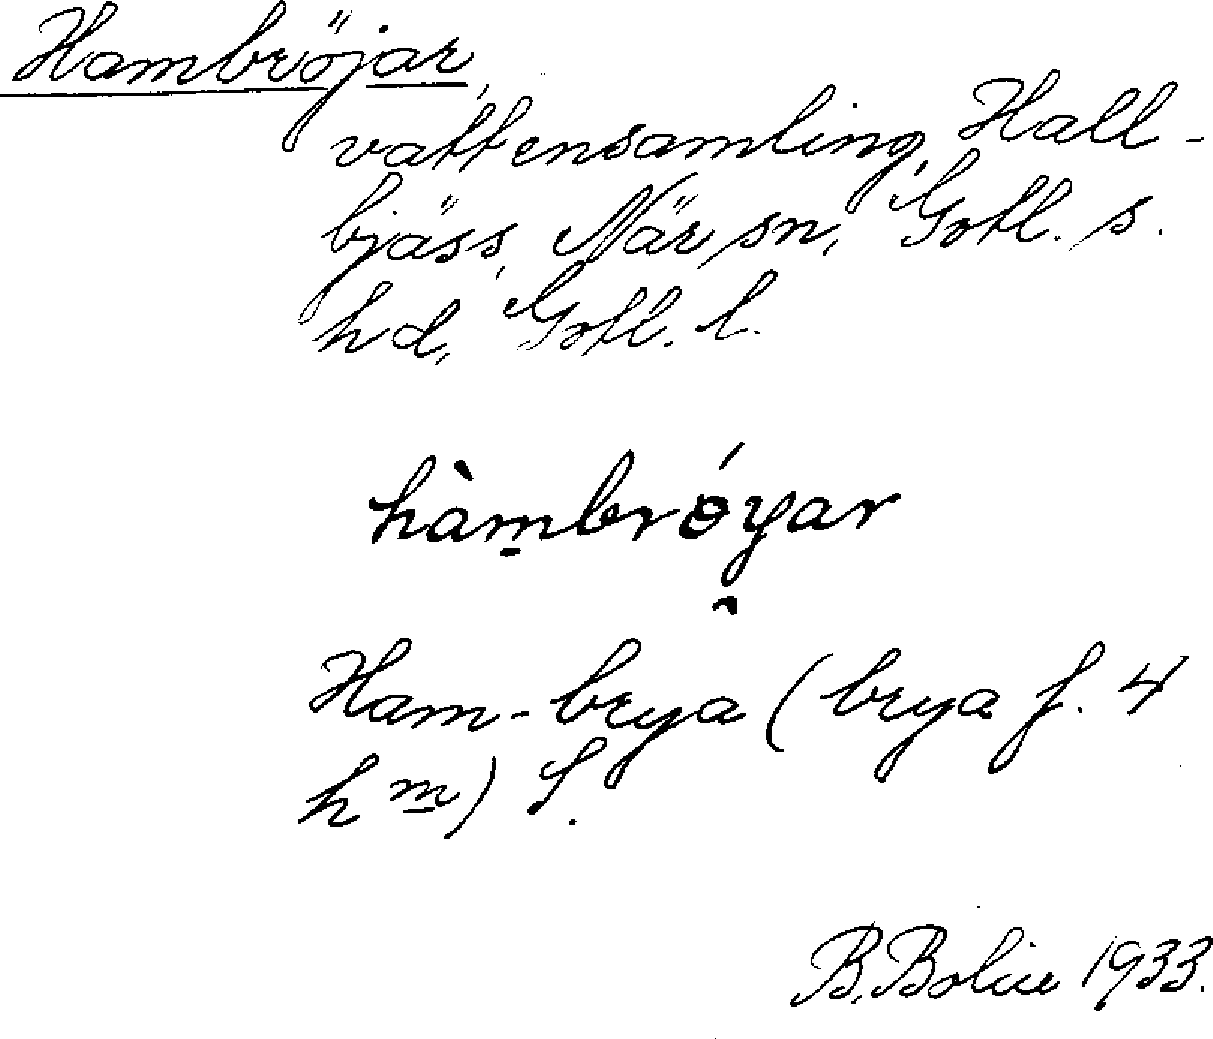 Hambröjar,
vattensamling, Hall-
bjäss, När sn, Gotl. s.
hd, Gotl. l.
hàm̱brɵ́yar
Ham-brya (brya f. 4
h m) f.
B. Bolin 1933.